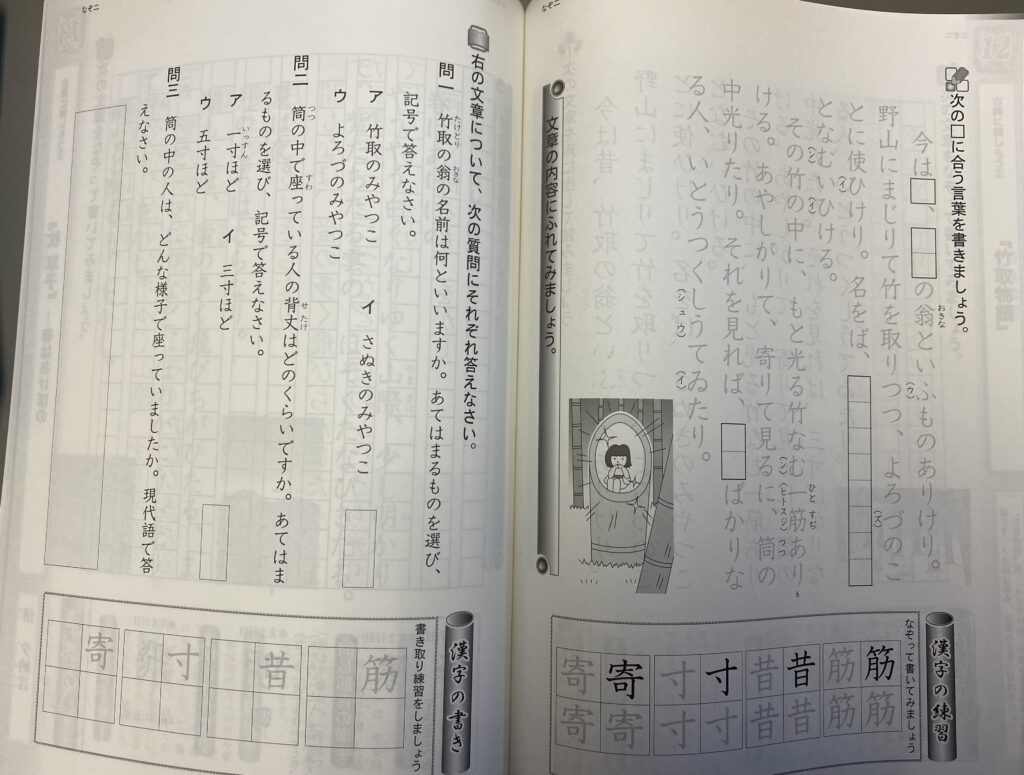 次の□に合う言葉を書きましょう。
今は□、□□の翁といふものありけり。
おきな
(ウ)
野山にまじりて竹を取りつつ、よろづのこ
(ズ)
とに使ひけり。名をば、□□□□□□□□
(イ)
となむいひける。
(ン)(イ)
その竹の中に、もと光る竹なむ一筋あり
(ン)
ひとすぢ
(ヒトスジ)
ける。あやしがりて、寄りて見るに、筒の
つつ
中光りたり。それを見れば、□□ばかりな
る人、いとうつくしうてゐたり。
(シュウ)
(イ)
漢字の練習
なぞって書いてみましょう
筋筋筋筋
昔昔昔昔
寸寸寸寸
寄寄寄寄
なぞ二
文章の内容にふれてみましょう。
右の文章について、次の質問にそれぞれ答えなさい。
問一 竹取の翁の名前は何といいますか。あてはまるものを選び、
たけとり
おきな
記号で答えなさい。
ア 竹取のみやつこ イ さぬきのみやつこ
ウ よろづのみやつこ
問二 筒の中で座っている人の背丈はどのくらいですか。あてはま
つつ
すわ
せたけ
るものを選び、記号で答えなさい。
ア 一寸ほど イ 三寸ほど
いっすん
ウ 五寸ほど
問三 筒の中の人は、どんな様子で座っていましたか。現代語で答
えなさい。
漢字の書き
書き取り練習をしましょう
筋
昔
寸
寄
なぞ二